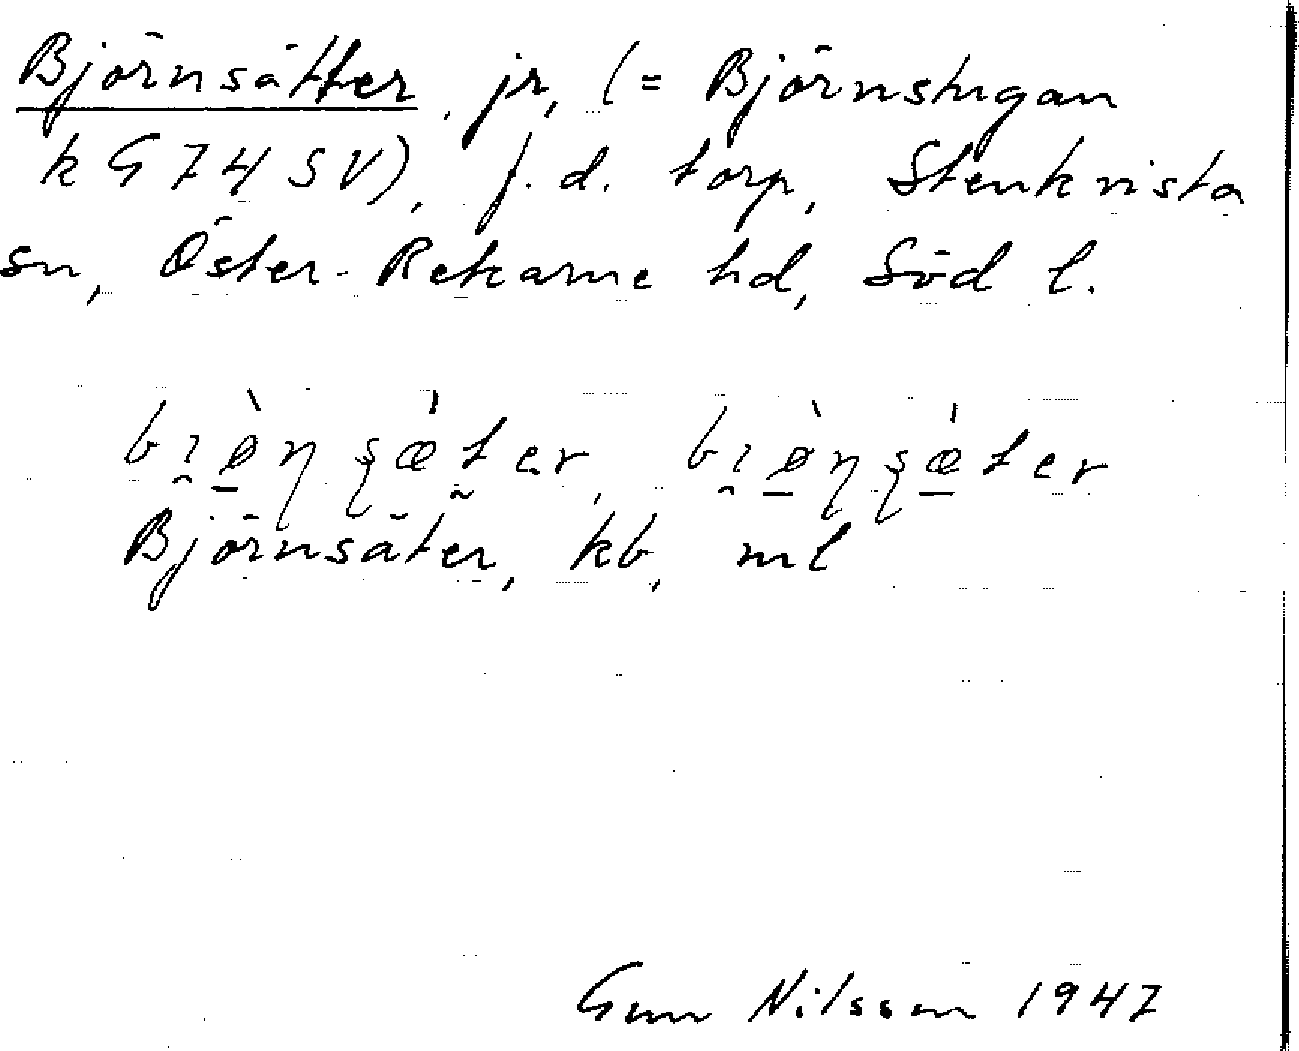 Björnsätter, jr, (= Björnstugan
k G 74 SV), f.d. torp, Stenkvista
sn, Öster-Rekarne hd, Söd l.
Björnsäter, kb, ml
Gun Nilsson 1947